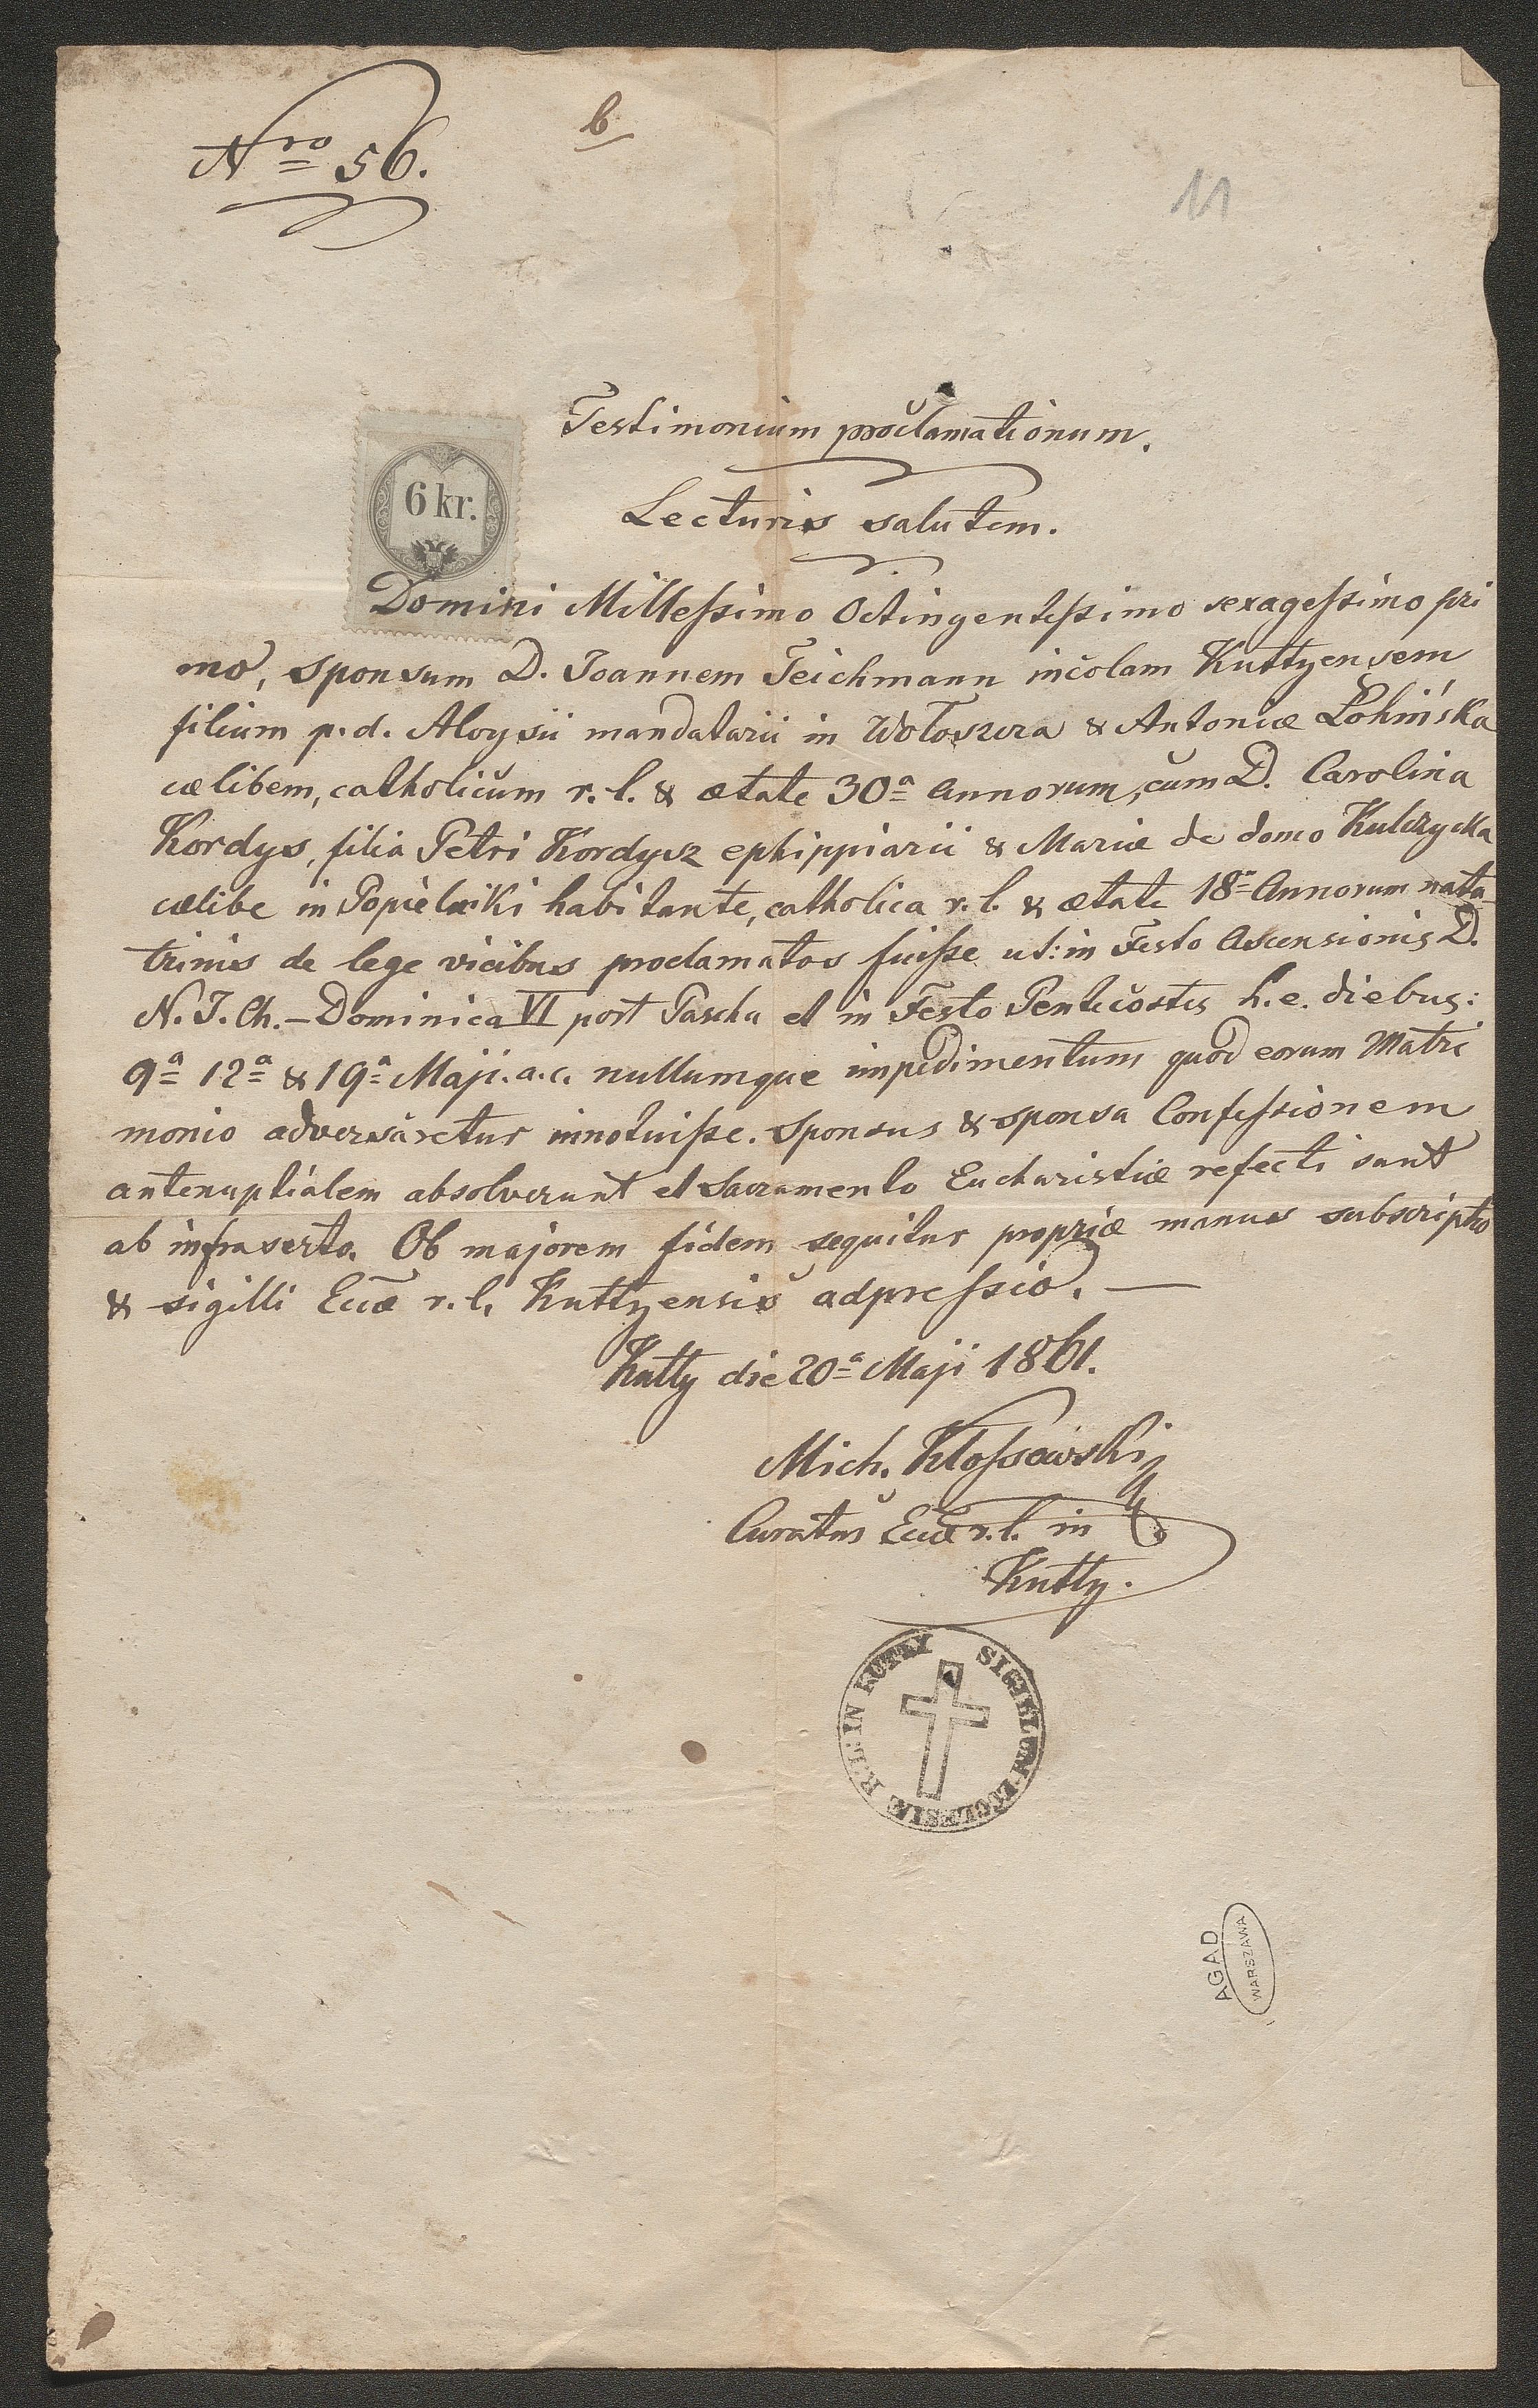 Nro 56.
b
11
Testimonium proclamationum.
Lecturis salutem.
6 kr.
Domini Millessimo Octingentessimo sexagessimo pri
mo, sponsum D. Joannem Teichmann incolam Kuttyensem
filium p.d. Aloysii mandatarii in Wołoszcza & Antoniæ Łohińska
cælibem, catholicum r.l. & ætate 30a annorum, cum D. Carolina
Kordys, filia Petri Kordysz ephippiarii & Mariæ de domo Kulczycka
cælibe in Popielniki habitante, catholica r.l. & ætate 18a Annorum nata
trinis de lege vicibus proclamatos fuisse ut: in Festo Ascensionis D.
N. J. Ch. – Dominica VI post Pascha et in Festo Pentecostes h.e. diebus:
9a 12a & 19a Maji. a.c. nullumque impedimentum quod eorum Matri
monio adversaretur innotuisse. Sponsus & sponsa Confessionem
antenuptialem absolverunt et Sacramento Eucharistiæ refecti sunt
ab infraserto. Ob majorem fidem sequitur propriæ manus subscriptio
& sigilli Eccæ r.l. Kuttyensis adpressio. —
Kutty die 20a Maji 1861.
Mich. Kłossowski
Curatus Eccæ r.l. in
Kutty.
SIGILLUM ECCLESIÆ R.L. IN KUTTY
AGAD
WARSZAWA